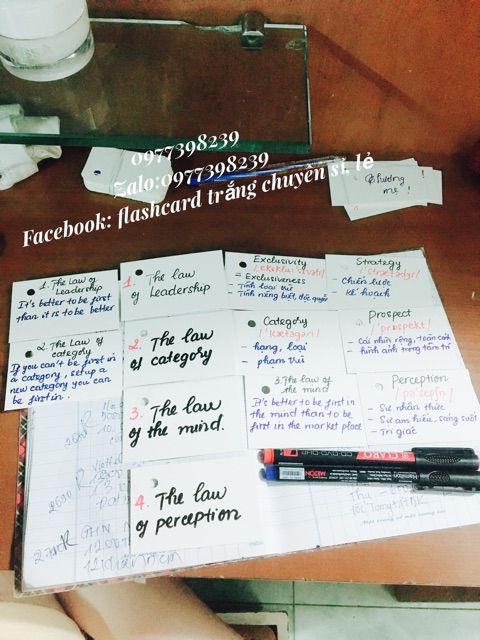 0977398239
Zalo:0977398239
Facebook: flashcard trắng chuyên sỉ, lẻ
Chương
mẹ !
1. The law of
Leadership
It's better to be first
than it is to be better
1. The law
of Leadership
Exclusivity
= Exclusiveness
- Tính loại trừ
- Tính riêng biệt, độc quyền
Strategy
- Chiến lược
- Kế hoạch
2. The Law of
category
If you can't be first in
a category, set up a
new category you can
be first in.
2. The law
of category
Category
- hạng, loại
- phạm trù
Prospect
- Cái nhìn rộng, toàn cảnh
- hình ảnh trong tâm trí
3. The law
of the mind.
3. The law of
the mind
It's better to be first in
the mind than to be
first in the market place
Perception
- Sự nhận thức
- Sự am hiểu, sáng suốt
- Tri giác
4. The law
of perception